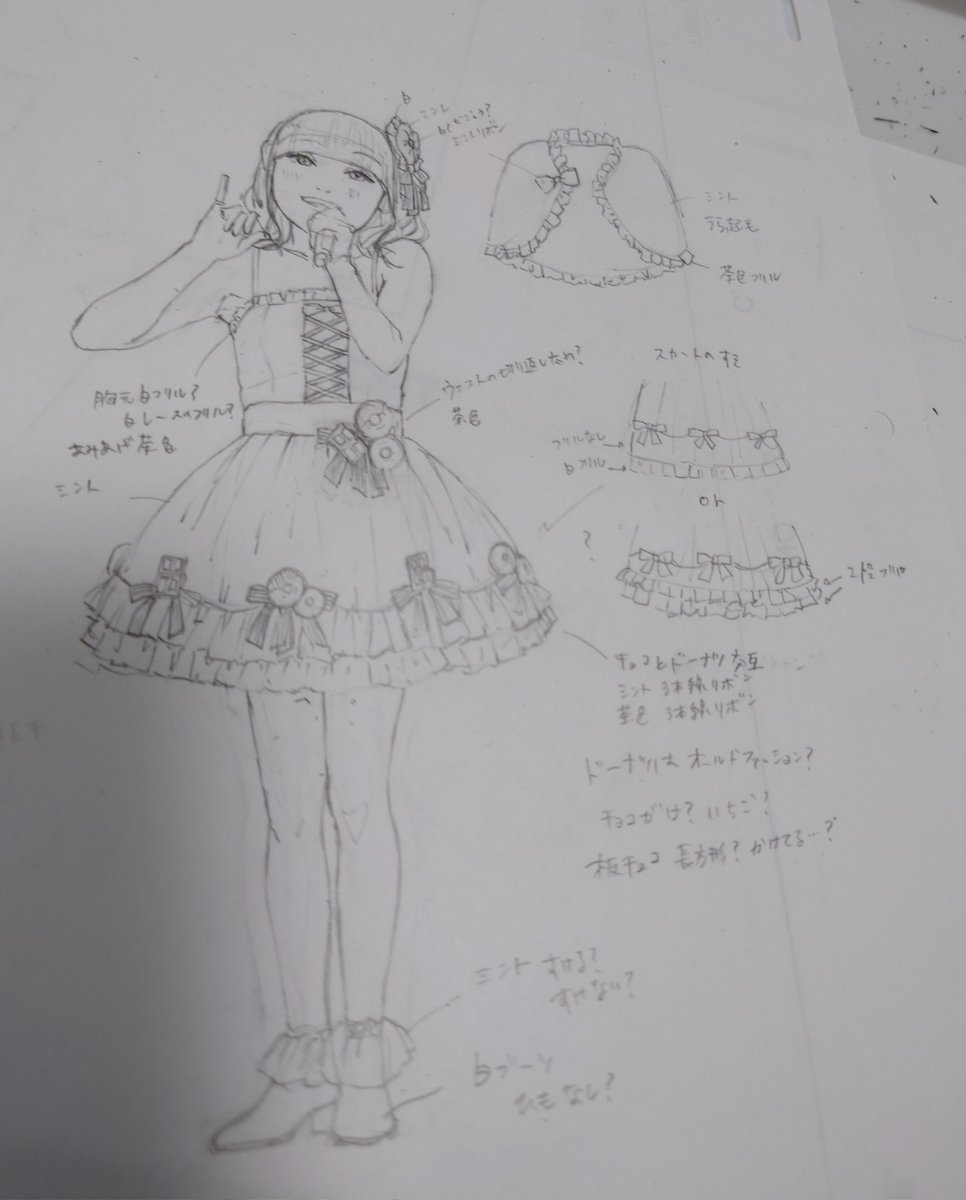 白
ミント
ミントリボン
ミント
裏起毛
茶色フリル
胸元白フリル?
白レースのフリル?
あみあげ茶色
ウェストの切り返しため?
茶色
ミント
スカートのすそ
フリルなし
白フリル
or
?
2段フリル
チョコとドーナツ交互
ミント 3本線リボン
茶色 3本線リボン
ドーナツは オールドファッション?
チョコがけ? いちご?
板チョコ 長方形? かけてる…?
ミント すける?
すけない?
白ブーツ
ひもなし?